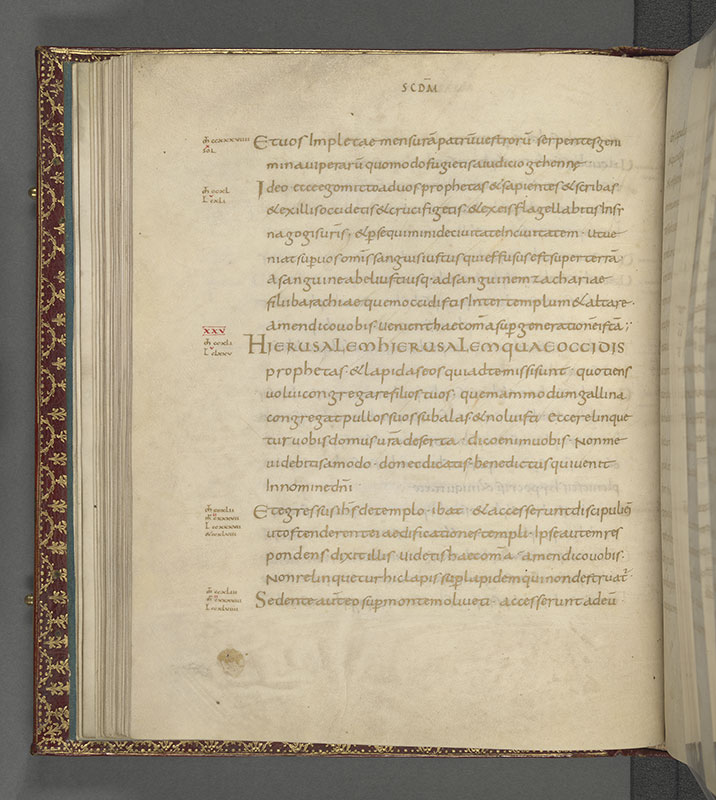 SCDM̄
Et uos Implete mensurā patrū uestrorū· serpentes geni
mina uiperarū quomodo fugietis a iudicio gehennę
Ideo ecce ego mitto ad uos prophetas & sapientes & scribas
& ex illis occidetis & crucifigetis· & ex eis flagellabitis In sy
nagogis uris̄· & p̄sequimini de ciuitate In ciuitatem· Ut ue
niat sup̄ uos omis̄ sanguis iustus qui effusus est super terrā
A sanguine abel iusti usq· ad sanguinem zachariae
filii barachiae quem occidistis Inter templum & altare·
amen dico uobis· uenient haec om̄a sup̄ generationē istā;
XXV
HIERUSALEM HIERUSALEM QUAE OCCIDIS
prophetas· & lapidas eos qui ad te missi sunt· quotiens
uolui congregare filios tuos· quemammodum gallina
congregat pullos suos sub alas & noluisti· Ecce relinque
tur uobis domus urā deserta· dico enim uobis· Non me
uidebitis amodo· donec dicatis· benedictus qui uenit
In nomine dn̄i
Et egressus ih̄s de templo· ibat· & accesserunt discipuli eiꝰ
ut ostenderent ei aedificationes templi· Ipse autem res
pondens dixit illis· Uidetis haec om̄a· amen dico uobis·
Non relinquetur hic lapis sup̄ lapidem qui non destruat᷑·
Sedente aut̄ eo sup̄ montem oliueti· accesserunt ad eū·